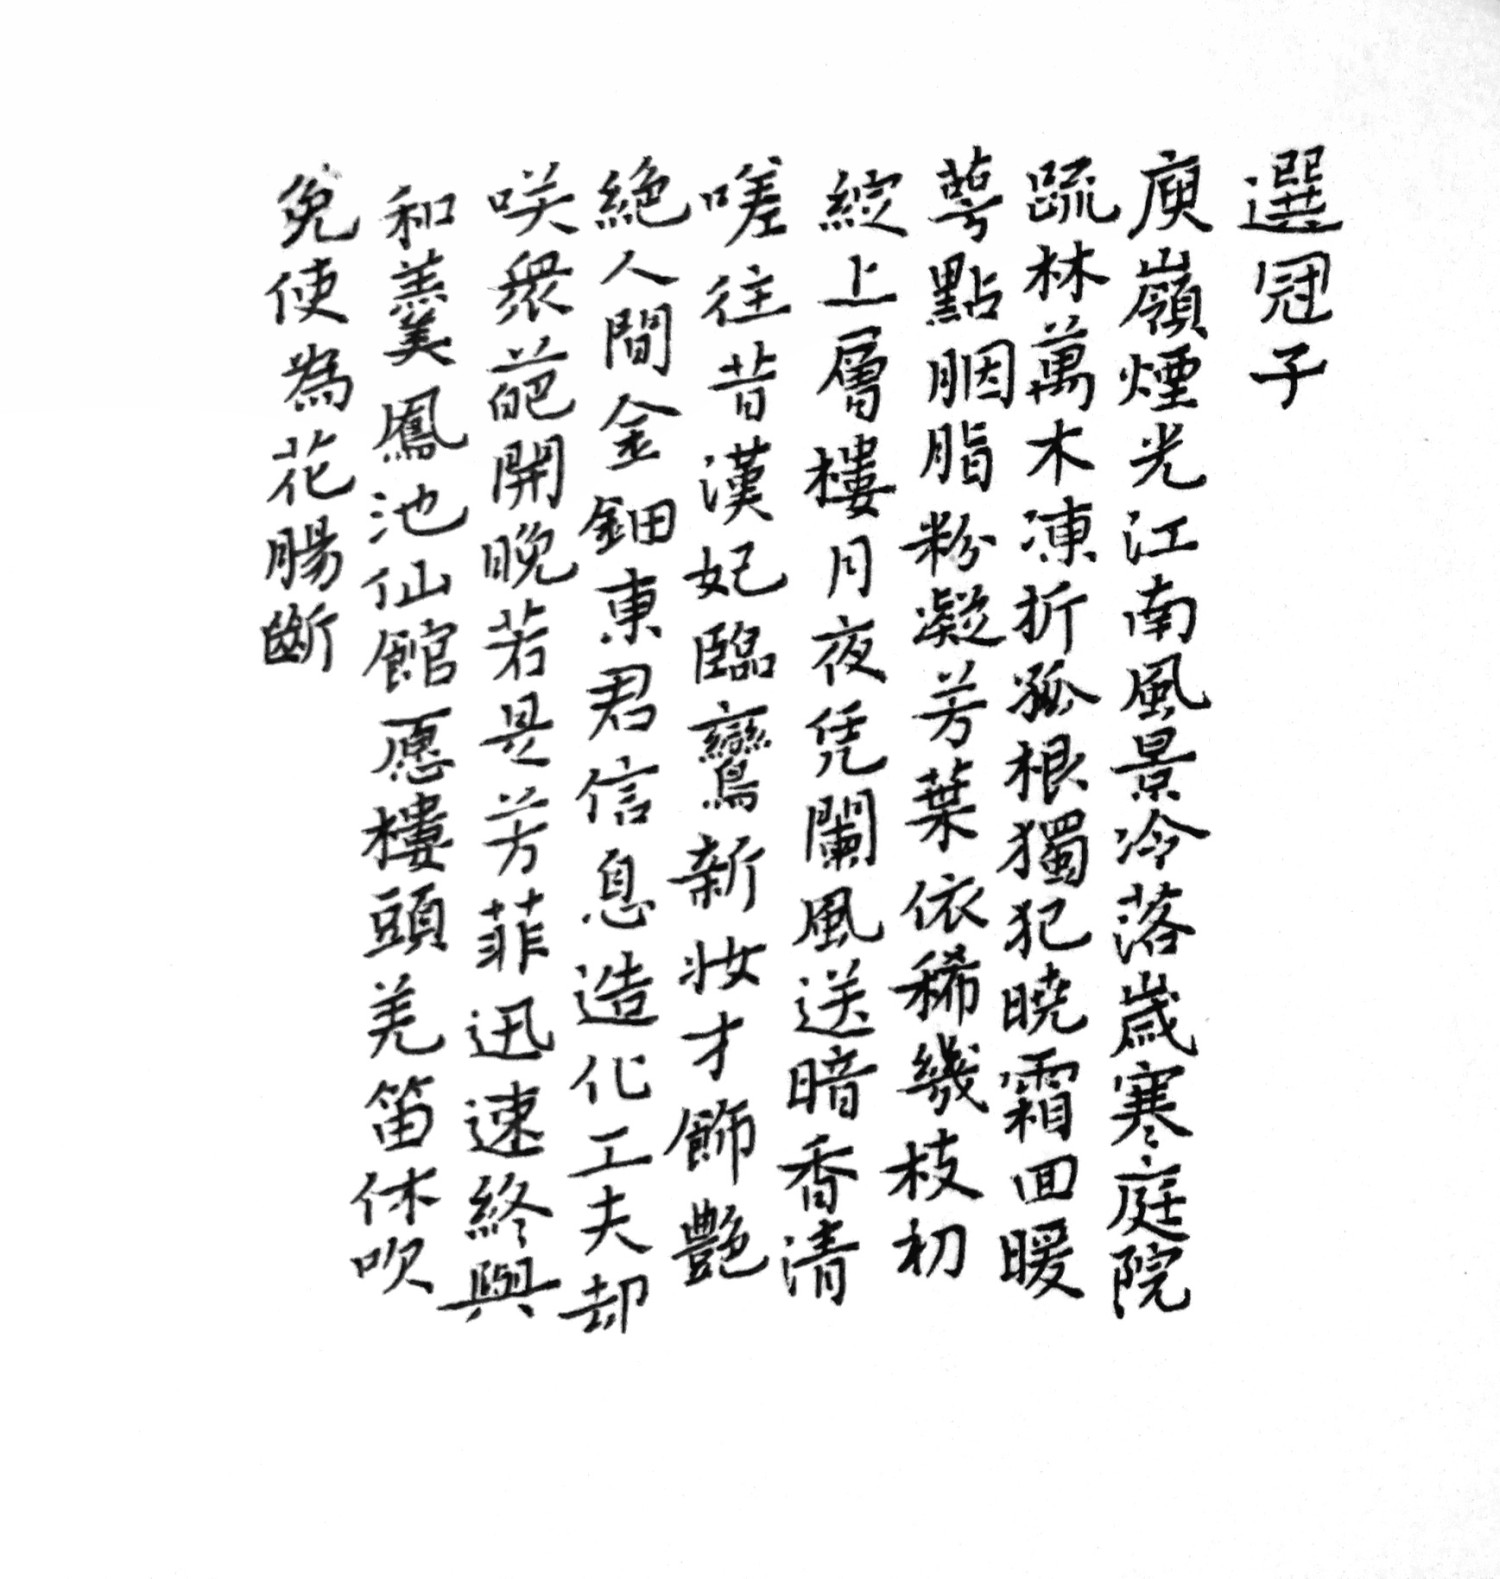 選冠子
庾嶺煙光江南風景冷落歲寒庭院
疏林萬木凍折孤根獨犯曉霜回暖
萼點胭脂粉凝芳葉依稀幾枝初
綻上層樓月夜凭闌風送暗香清
嗟往昔漢妃臨鸞新妝才飾艷
絕人間金鈿東君信息造化工夫却
咲衆葩開晚若是芳菲迅速終與
和羹鳳池仙館愿樓頭羌笛休吹
免使為花腸斷